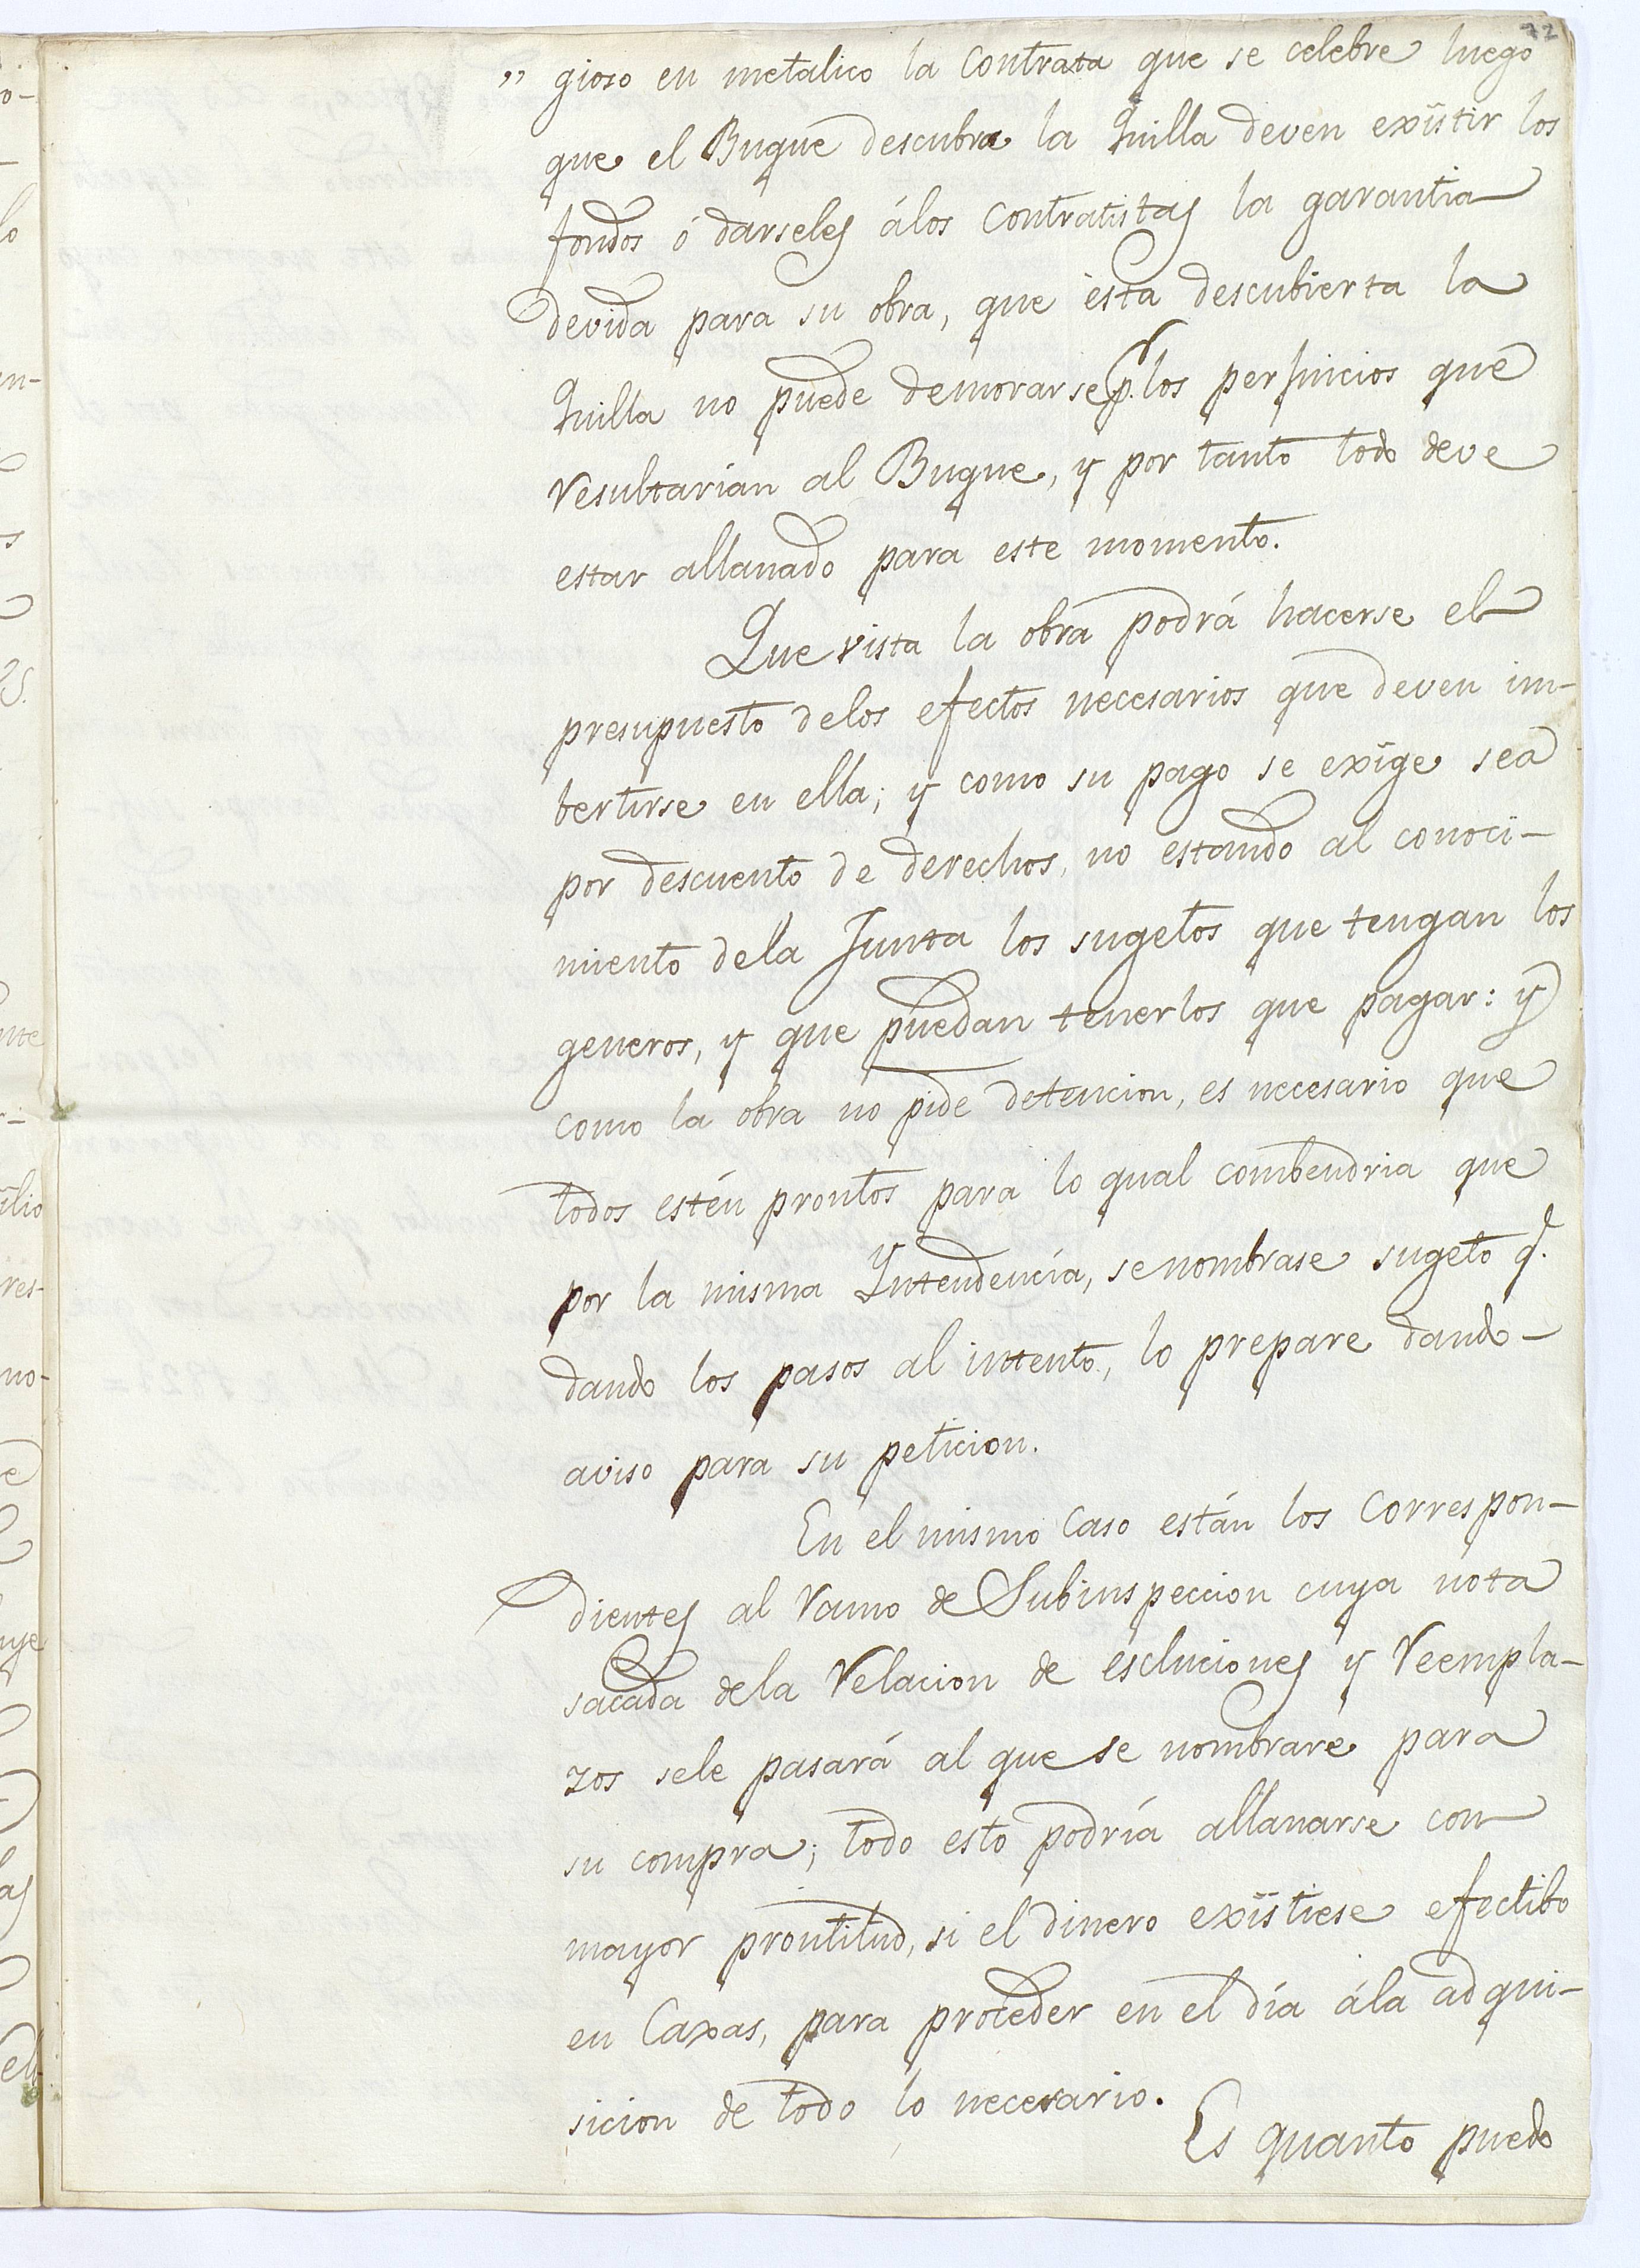 72
" gioso en metalico la Contrata que se celebre luego
que el Buque descubra la Quilla deven existir los
fondos ó darseles álos Contratistas la garantia
devida para su obra, que esta descubierta la
Quilla no puede demorarse p.r los perjuicios que
resultarian al Buque, y por tanto todo deve
estar allanado para este momento.
Que vista la obra podrá hacerse el
presupuesto delos efectos necesarios que deven im-
bertirse en ella; y como su pago se exige sea
por descuento de derechos, no estando al conoci-
miento dela Junta los sugetos que tengan los
generos, y que puedan tenerlos que pagar: y
como la obra no pide detencion, es necesario que
todos estén prontos para lo qual combendria que
por la misma Yntendencia, se nombrase sugeto q.e
dando los pasos al intento, lo prepare dando-
aviso para su peticion.
En el mismo Caso están los Correspon-
dientes al ramo de Subinspeccion cuya nota
sacada dela relacion de escluciones y reempla-
zos sele pasará al que se nombrare para
su compra; todo esto podría allanarse con
mayor prontitud, si el dinero existiese efectibo
en Caxas, para proceder en el día ála adqui-
sicion de todo lo necesario.
Es quanto puedo